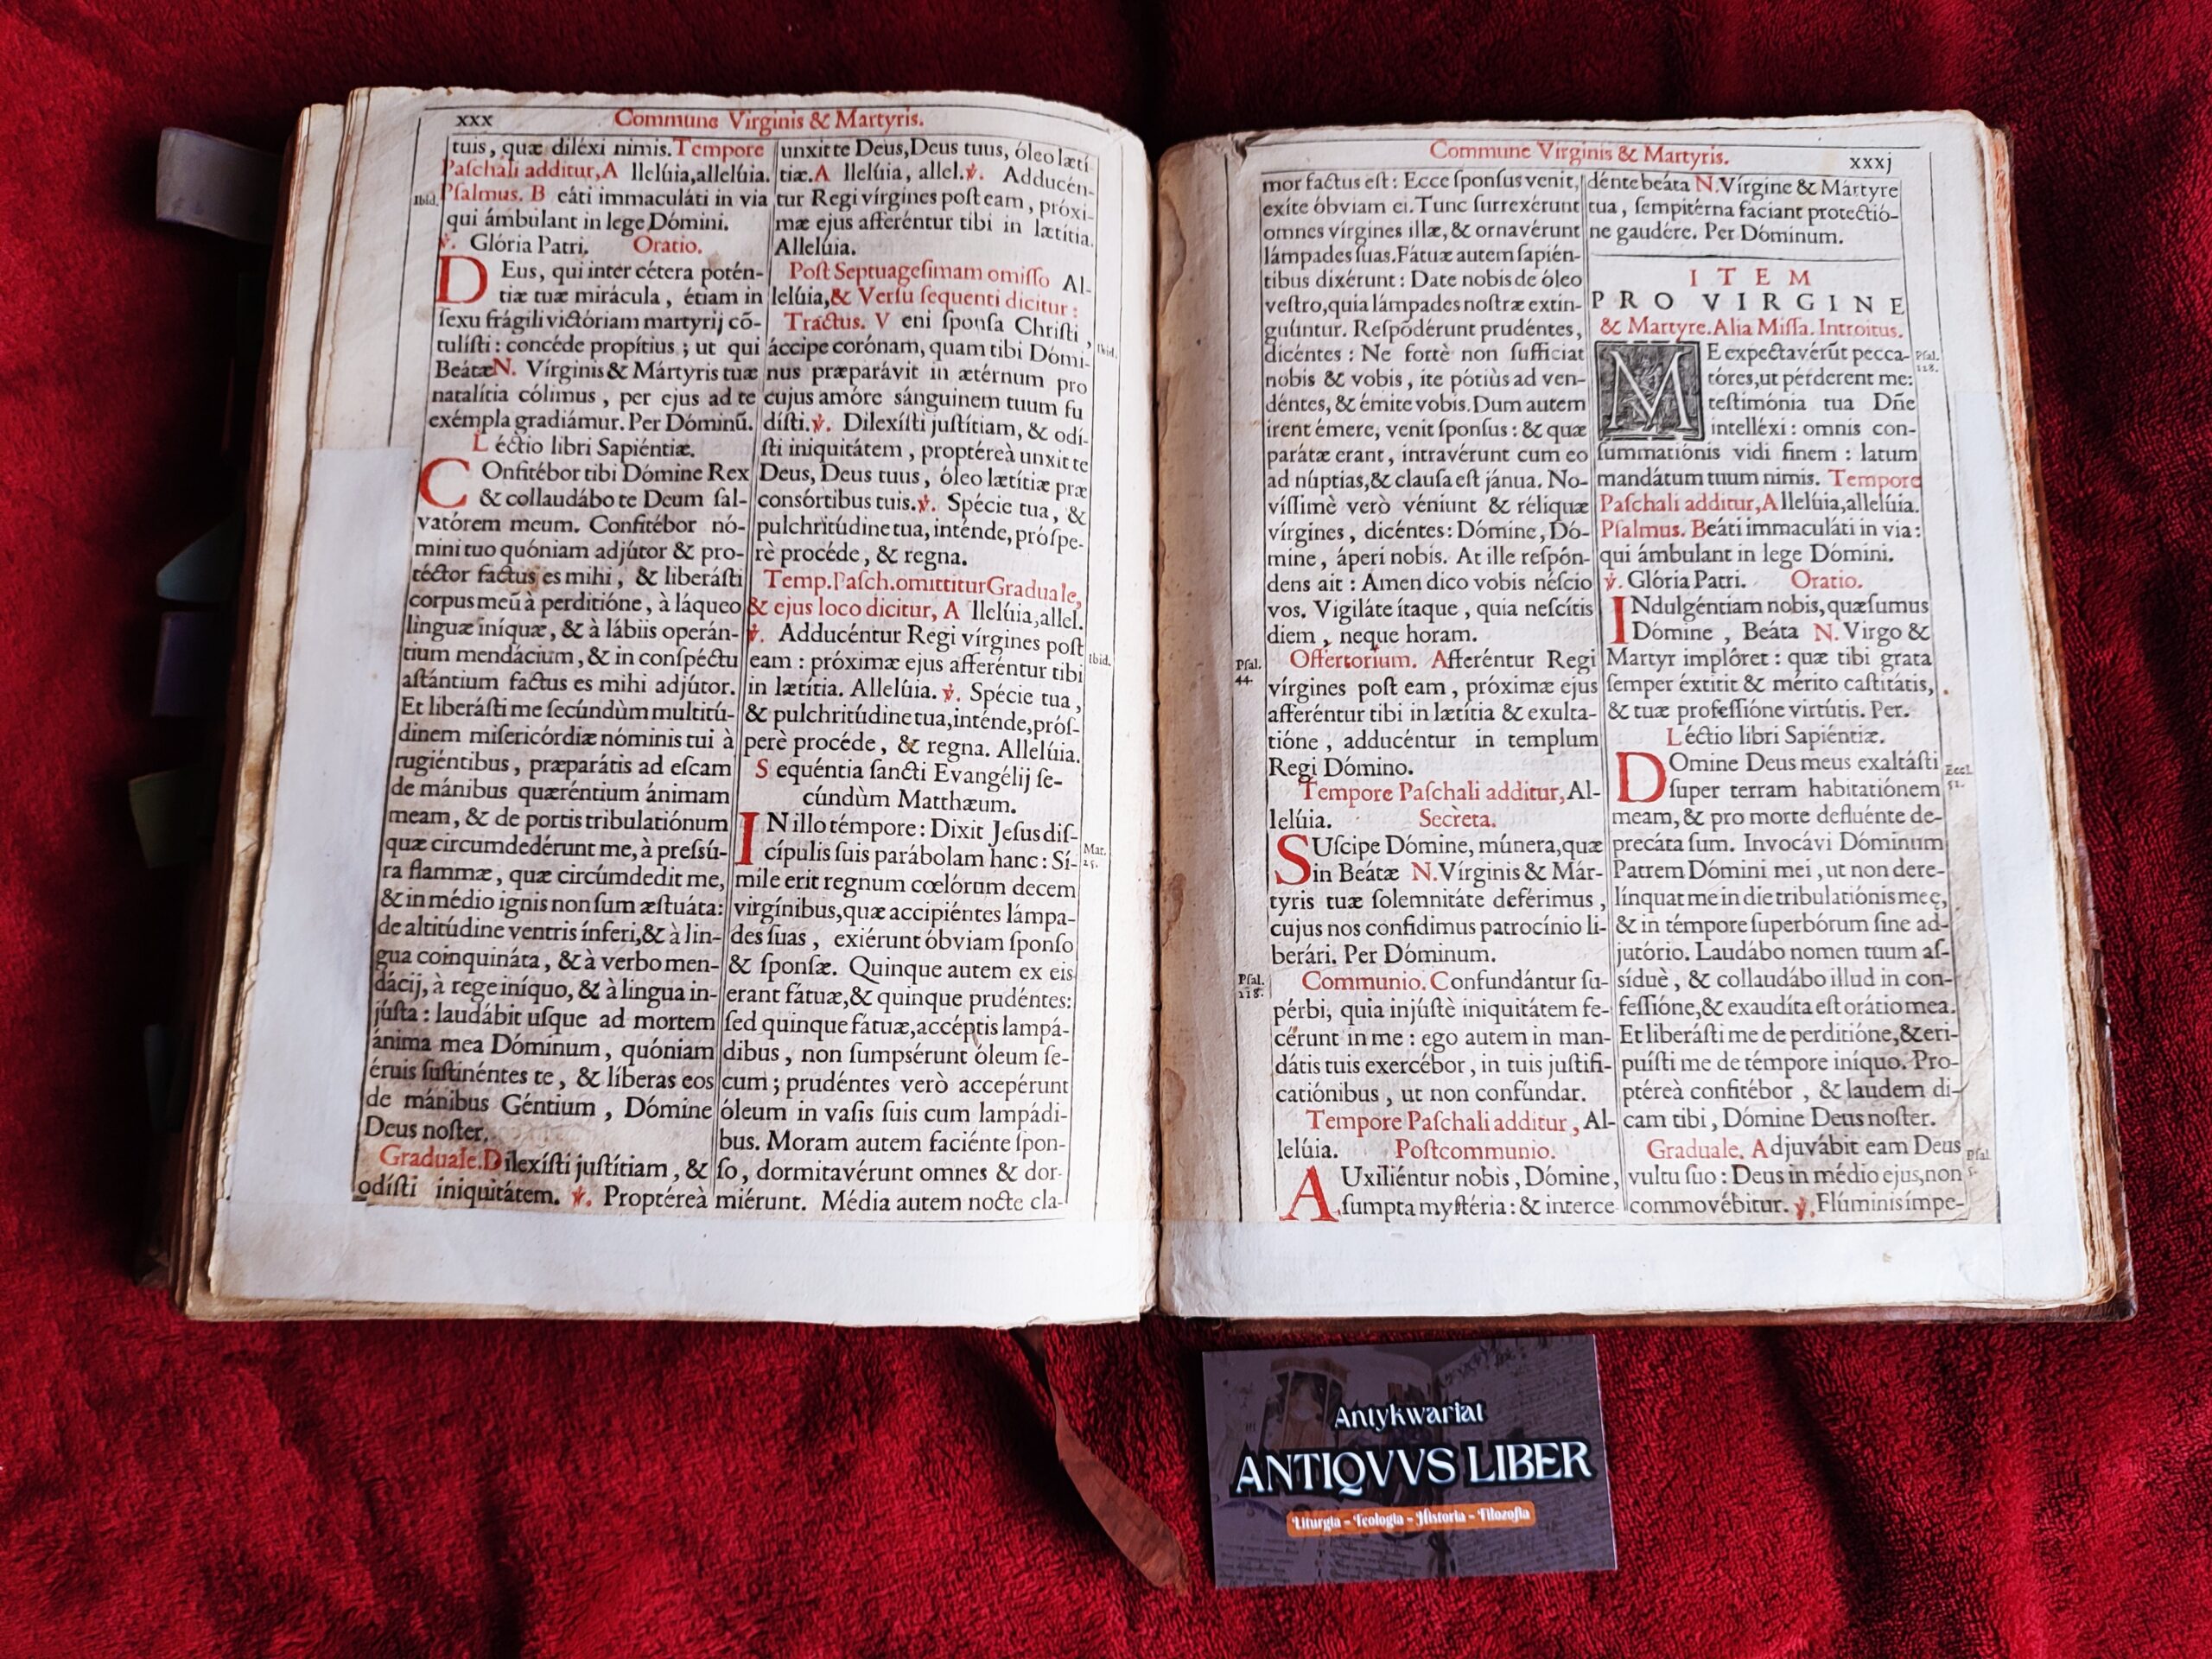 xxx Commune Virginis & Martyris.
tuis, quæ diléxi nimis. Tempore
Paſchali additur, A llelúia, allelúia.
Ibid.
Pſalmus. B eáti immaculáti in via
qui ámbulant in lege Dómini.
℣. Glória Patri. Oratio.
DEus, qui inter cétera potén-
tiæ tuæ mirácula, étiam in
ſexu frágili victóriam martyrij cõ-
tulíſti: concéde propítius; ut qui
Beátæ N. Vírginis & Mártyris tuæ
natalítia cólimus, per ejus ad te
exémpla gradiámur. Per Dóminũ.
L éctio libri Sapiéntiæ.
COnfitébor tibi Dómine Rex
& collaudábo te Deum ſal-
vatórem meum. Confitébor nó-
mini tuo quóniam adjútor & pro-
téctor factus es mihi, & liberáſti
corpus meũ à perditióne, à láqueo
linguæ iníquæ, & à lábiis operán-
tium mendácium, & in conſpéctu
aſtántium factus es mihi adjútor.
Et liberáſti me ſecúndùm multitú-
dinem miſericórdiæ nóminis tui à
rugiéntibus, præparátis ad eſcam
de mánibus quæréntium ánimam
meam, & de portis tribulatiónum
quæ circumdedérunt me, à preſsú-
ra flammæ, quæ circúmdedit me,
& in médio ignis non ſum æſtuáta:
de altitúdine ventris ínferi, & à lin-
gua coinquináta, & à verbo men-
dácij, à rege iníquo, & à lingua in-
júſta: laudábit uſque ad mortem
ánima mea Dóminum, quóniam
éruis ſuſtinéntes te, & líberas eos
de mánibus Géntium, Dómine
Deus noſter.
Graduale. Dilexíſti juſtítiam, &
odíſti iniquitátem. ℣. Proptéreà
unxit te Deus, Deus tuus, óleo lætí-
tiæ. A llelúia, allel. ℣. Adducén-
tur Regi vírgines poſt eam, próxi-
mæ ejus afferéntur tibi in lætítia.
Allelúia.
Poſt Septuageſimam omiſſo Al-
lelúia, & Verſu ſequenti dicitur:
Tractus. V eni ſponſa Chriſti,
Ibid.
áccipe corónam, quam tibi Dómi-
nus præparávit in ætérnum pro
cujus amóre sánguinem tuum fu
díſti. ℣. Dilexíſti juſtítiam, & odí-
ſti iniquitátem, proptéreà unxit te
Deus, Deus tuus, óleo lætítiæ præ
consórtibus tuis. ℣. Spécie tua, &
pulchritúdine tua, inténde, próſpe-
rè procéde, & regna.
Temp. Paſch. omittitur Graduale,
& ejus loco dicitur, A llelúia, allel.
℣. Adducéntur Regi vírgines poſt
Ibid.
eam: próximæ ejus afferéntur tibi
in lætítia. Allelúia. ℣. Spécie tua,
& pulchritúdine tua, inténde, próſ-
perè procéde, & regna. Allelúia.
S equéntia ſancti Evangélij ſe-
cúndùm Matthæum.
IN illo témpore: Dixit Jeſus diſ-
Mat. 25.
cípulis ſuis parábolam hanc: Sí-
mile erit regnum cœlórum decem
virgínibus, quæ accipiéntes lámpa-
des ſuas, exiérunt óbviam ſponſo
& ſponſæ. Quinque autem ex eis
erant fátuæ, & quinque prudéntes:
ſed quinque fátuæ, accéptis lampá-
dibus, non ſumpsérunt óleum ſe-
cum; prudéntes verò accepérunt
óleum in vaſis ſuis cum lampádi-
bus. Moram autem faciénte ſpon-
ſo, dormitavérunt omnes & dor-
miérunt. Média autem nocte cla-
Commune Virginis & Martyris. xxxj
mor factus eſt: Ecce ſponſus venit,
exíte óbviam ei. Tunc ſurrexérunt
omnes vírgines illæ, & ornavérunt
lámpades ſuas. Fátuæ autem ſapién-
tibus dixérunt: Date nobis de óleo
veſtro, quia lámpades noſtræ extin-
guúntur. Reſpõdérunt prudéntes,
dicéntes: Ne fortè non ſufficiat
nobis & vobis, ite pótiùs ad ven-
déntes, & émite vobis. Dum autem
irent émere, venit ſponſus: & quæ
parátæ erant, intravérunt cum eo
ad núptias, & clauſa eſt jánua. No-
víſſimè verò véniunt & réliquæ
vírgines, dicéntes: Dómine, Dó-
mine, áperi nobis. At ille reſpón-
dens ait: Amen dico vobis néſcio
vos. Vigiláte ítaque, quia neſcítis
diem, neque horam.
Pſal. 44.
Offertorium. Afferéntur Regi
vírgines poſt eam, próximæ ejus
afferéntur tibi in lætítia & exulta-
tióne, adducéntur in templum
Regi Dómino.
Tempore Paſchali additur, Al-
lelúia. Secreta.
SUſcipe Dómine, múnera, quæ
in Beátæ N. Vírginis & Már-
tyris tuæ ſolemnitáte deférimus,
cujus nos confídimus patrocínio li-
berári. Per Dóminum.
Pſal. 118.
Communio. Confundántur ſu-
pérbi, quia injúſtè iniquitátem fe-
cérunt in me: ego autem in man-
dátis tuis exercébor, in tuis juſtifi-
catiónibus, ut non confúndar.
Tempore Paſchali additur, Al-
lelúia. Poſtcommunio.
AUxiliéntur nobis, Dómine,
ſumpta myſtéria: & interce
dénte beáta N. Vírgine & Mártyre
tua, ſempitérna fáciant protectió-
ne gaudére. Per Dóminum.
ITEM
PRO VIRGINE
& Martyre. Alia Miſſa. Introitus.
ME expectavérũt pecca-
Pſal. 118.
tóres, ut pérderent me:
teſtimónia tua Dñe
intelléxi: omnis con-
ſummatiónis vidi finem: latum
mandátum tuum nimis. Tempore
Paſchali additur, Allelúia, allelúia.
Pſalmus. Beáti immaculáti in via:
qui ámbulant in lege Dómini.
℣. Glória Patri. Oratio.
INdulgéntiam nobis, quæſumus
Dómine, Beáta N. Virgo &
Martyr implóret: quæ tibi grata
ſemper éxtitit & mérito caſtitátis,
& tuæ profeſſióne virtútis. Per.
Léctio libri Sapiéntiæ.
DOmine Deus meus exaltáſti
Eccl. 51.
ſuper terram habitatiónem
meam, & pro morte defluénte de-
precáta ſum. Invocávi Dóminum
Patrem Dómini mei, ut non dere-
línquat me in die tribulatiónis meę,
& in témpore ſuperbórum ſine ad-
jutório. Laudábo nomen tuum aſ-
síduè, & collaudábo illud in con-
feſſióne, & exaudíta eſt orátio mea.
Et liberáſti me de perditióne, & eri-
puíſti me de témpore iníquo. Pro-
ptéreà confitébor, & laudem di-
cam tibi, Dómine Deus noſter.
Graduale. Adjuvábit eam Deus
Pſal. 5.
vultu ſuo: Deus in médio ejus, non
commovébitur. ℣. Flúminis ímpe-
Antykwariat
ANTIQVVS LIBER
Liturgia - Teologia - Historia - Filozofia